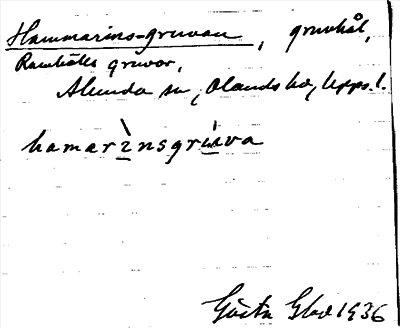 Hammarins-gruvan, gruvhål,
Ramhälls gruvor,
Alunda sn, Olands hd, Upps. l.
hamarìnsgrúva
Gösta Glad 1936